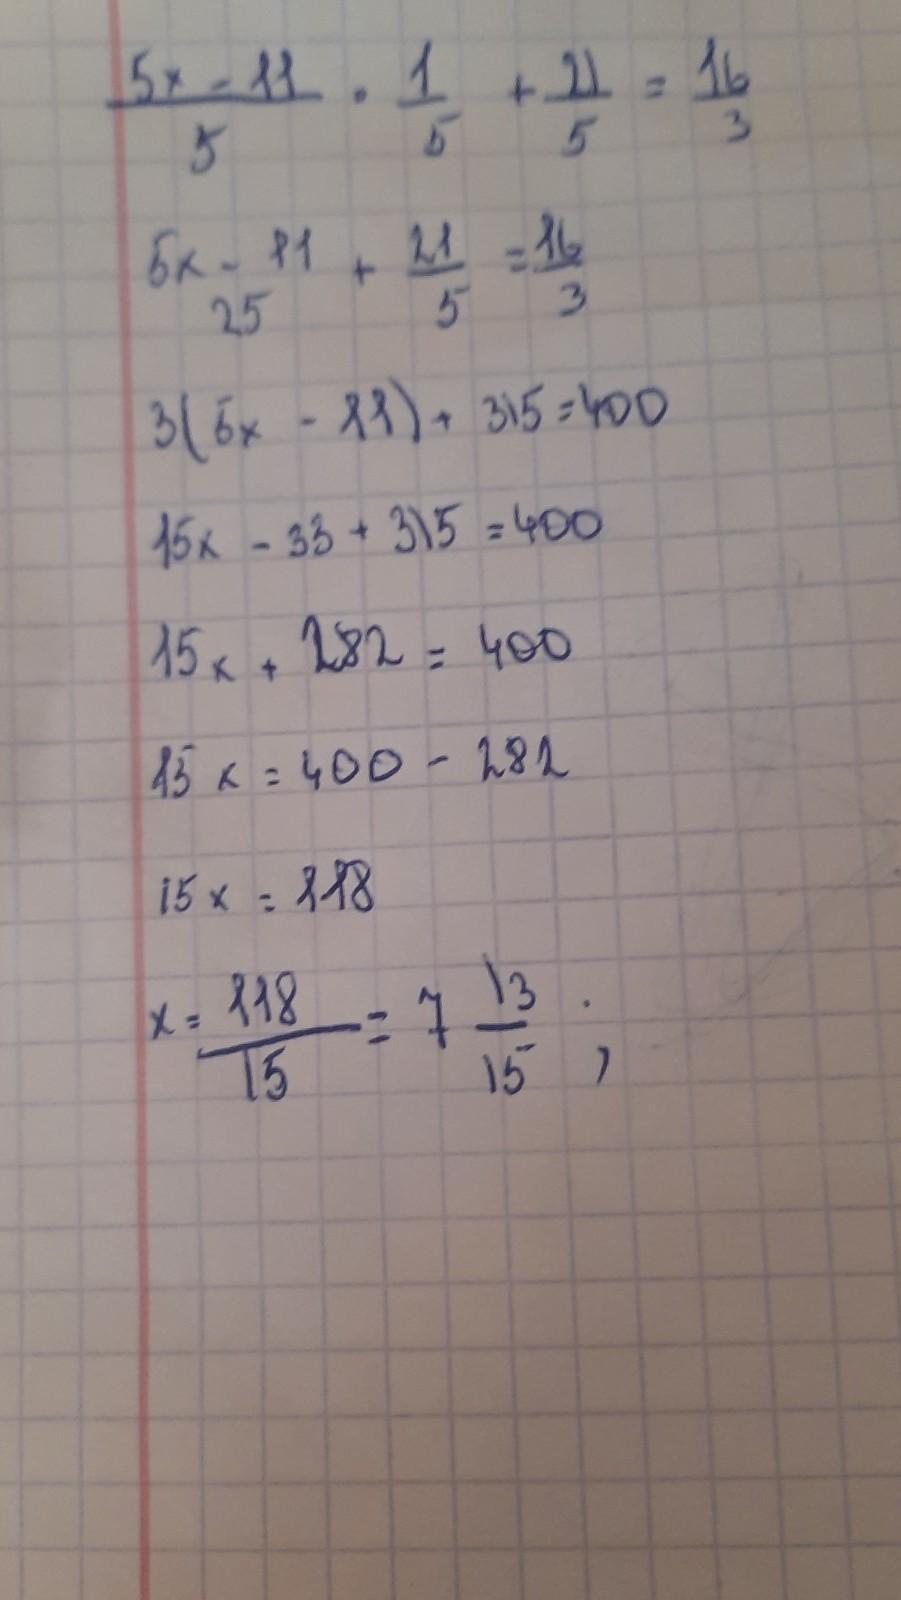 (5x - 11)/5 · 1/5 + 21/5 = 16/3
5x - 11/25 + 21/5 = 16/3
3(5x - 11) + 315 = 400
15x - 33 + 315 = 400
15x + 282 = 400
15x = 400 - 282
15x = 118
x = 118/15 = 7 13/15 ;